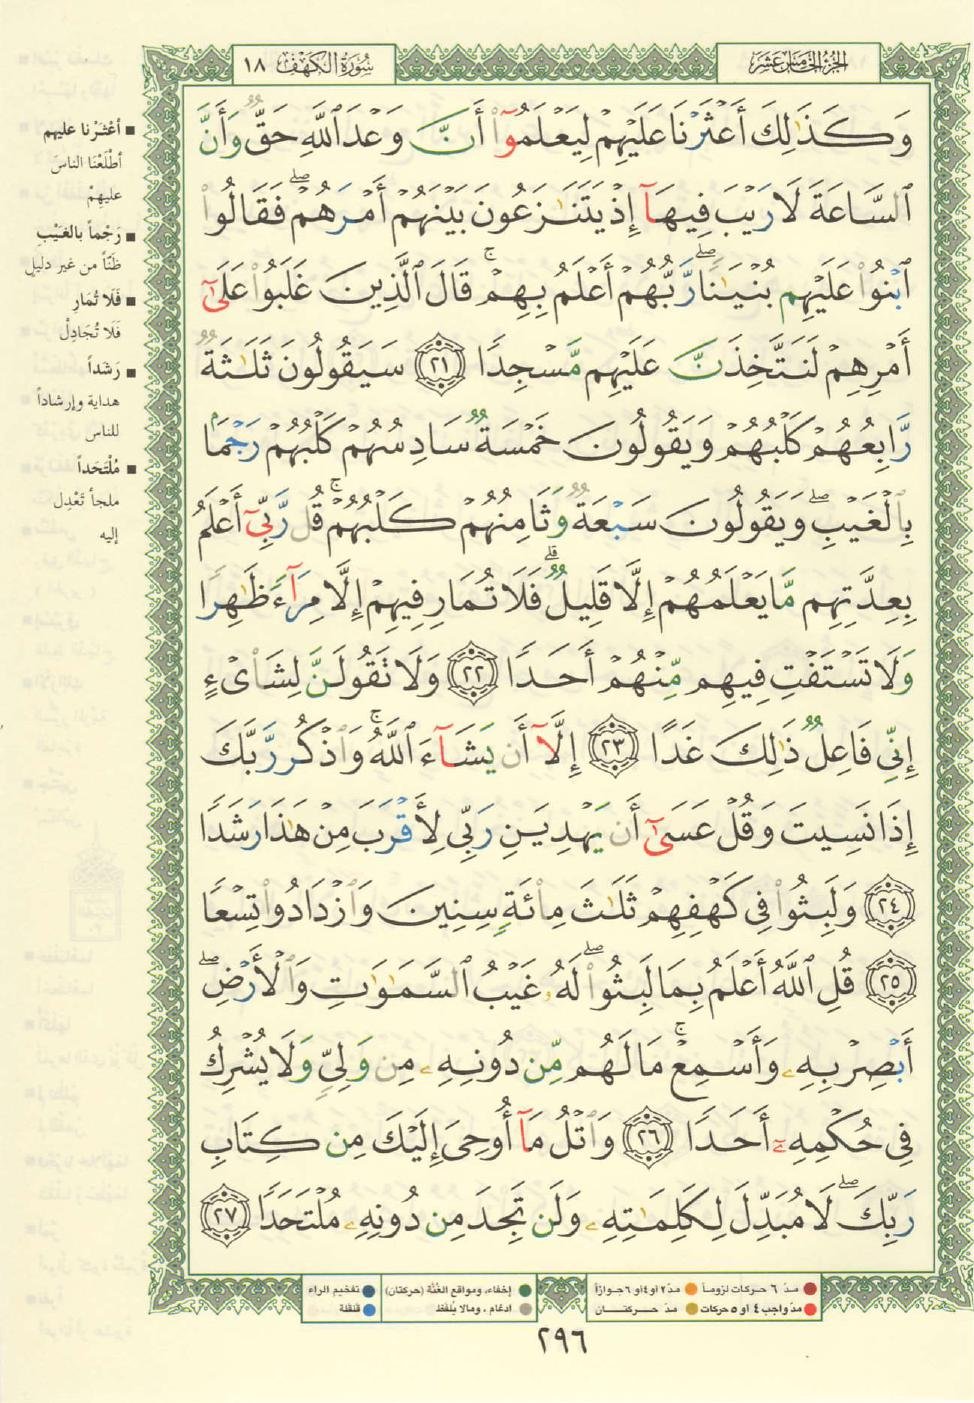 الجزء الخامس عشر
سورة الكهف ١٨
وَكَذَٰلِكَ أَعْثَرْنَا عَلَيْهِمْ لِيَعْلَمُوٓا۟ أَنَّ وَعْدَ ٱللَّهِ حَقٌّ وَأَنَّ
ٱلسَّاعَةَ لَا رَيْبَ فِيهَآ إِذْ يَتَنَٰزَعُونَ بَيْنَهُمْ أَمْرَهُمْ ۖ فَقَالُوا۟
ٱبْنُوا۟ عَلَيْهِم بُنْيَٰنًا ۖ رَّبُّهُمْ أَعْلَمُ بِهِمْ ۚ قَالَ ٱلَّذِينَ غَلَبُوا۟ عَلَىٰٓ
أَمْرِهِمْ لَنَتَّخِذَنَّ عَلَيْهِم مَّسْجِدًا ٢١ سَيَقُولُونَ ثَلَٰثَةٌ
رَّابِعُهُمْ كَلْبُهُمْ وَيَقُولُونَ خَمْسَةٌ سَادِسُهُمْ كَلْبُهُمْ رَجْمًۢا
بِٱلْغَيْبِ ۖ وَيَقُولُونَ سَبْعَةٌ وَثَامِنُهُمْ كَلْبُهُمْ ۚ قُل رَّبِّىٓ أَعْلَمُ
بِعِدَّتِهِم مَّا يَعْلَمُهُمْ إِلَّا قَلِيلٌ ۗ فَلَا تُمَارِ فِيهِمْ إِلَّا مِرَآءً ظَٰهِرًا
وَلَا تَسْتَفْتِ فِيهِم مِّنْهُمْ أَحَدًا ٢٢ وَلَا تَقُولَنَّ لِشَا۟ىْءٍ
إِنِّى فَاعِلٌ ذَٰلِكَ غَدًا ٢٣ إِلَّآ أَن يَشَآءَ ٱللَّهُ ۚ وَٱذْكُر رَّبَّكَ
إِذَا نَسِيتَ وَقُلْ عَسَىٰٓ أَن يَهْدِيَنِ رَبِّى لِأَقْرَبَ مِنْ هَٰذَا رَشَدًا
٢٤ وَلَبِثُوا۟ فِى كَهْفِهِمْ ثَلَٰثَ مِا۟ئَةٍ سِنِينَ وَٱزْدَادُوا۟ تِسْعًا
٢٥ قُلِ ٱللَّهُ أَعْلَمُ بِمَا لَبِثُوا۟ ۖ لَهُۥ غَيْبُ ٱلسَّمَٰوَٰتِ وَٱلْأَرْضِ ۖ
أَبْصِرْ بِهِۦ وَأَسْمِعْ ۚ مَا لَهُم مِّن دُونِهِۦ مِن وَلِىٍّ وَلَا يُشْرِكُ
فِى حُكْمِهِۦٓ أَحَدًا ٢٦ وَٱتْلُ مَآ أُوحِىَ إِلَيْكَ مِن كِتَابِ
رَبِّكَ ۖ لَا مُبَدِّلَ لِكَلِمَٰتِهِۦ وَلَن تَجِدَ مِن دُونِهِۦ مُلْتَحَدًا ٢٧
■ أعْثَرْنا عليهم
أطْلَعْنَا الناسَ
عليهِمْ
■ رَجْماً بالغَيْبِ
ظَنّاً من غيرِ دليلٍ
■ فَلَا تُمَارِ
فَلَا تُجَادِلْ
■ رَشَداً
هداية وإرشاداً
للناس
■ مُلْتَحَداً
ملجأ تَعْدِل
إليه
مدّ ٦ حركات لزوماً
مدّ ٢ أو ٤ أو ٦ جوازاً
إخفاء، ومواقع الغُنَّة (حركتان)
تفخيم الراء
مدّ واجب ٤ أو ٥ حركات
مدّ حركتان
ادغام، ومالا يُلفَظ
قلقلة
٢٩٦